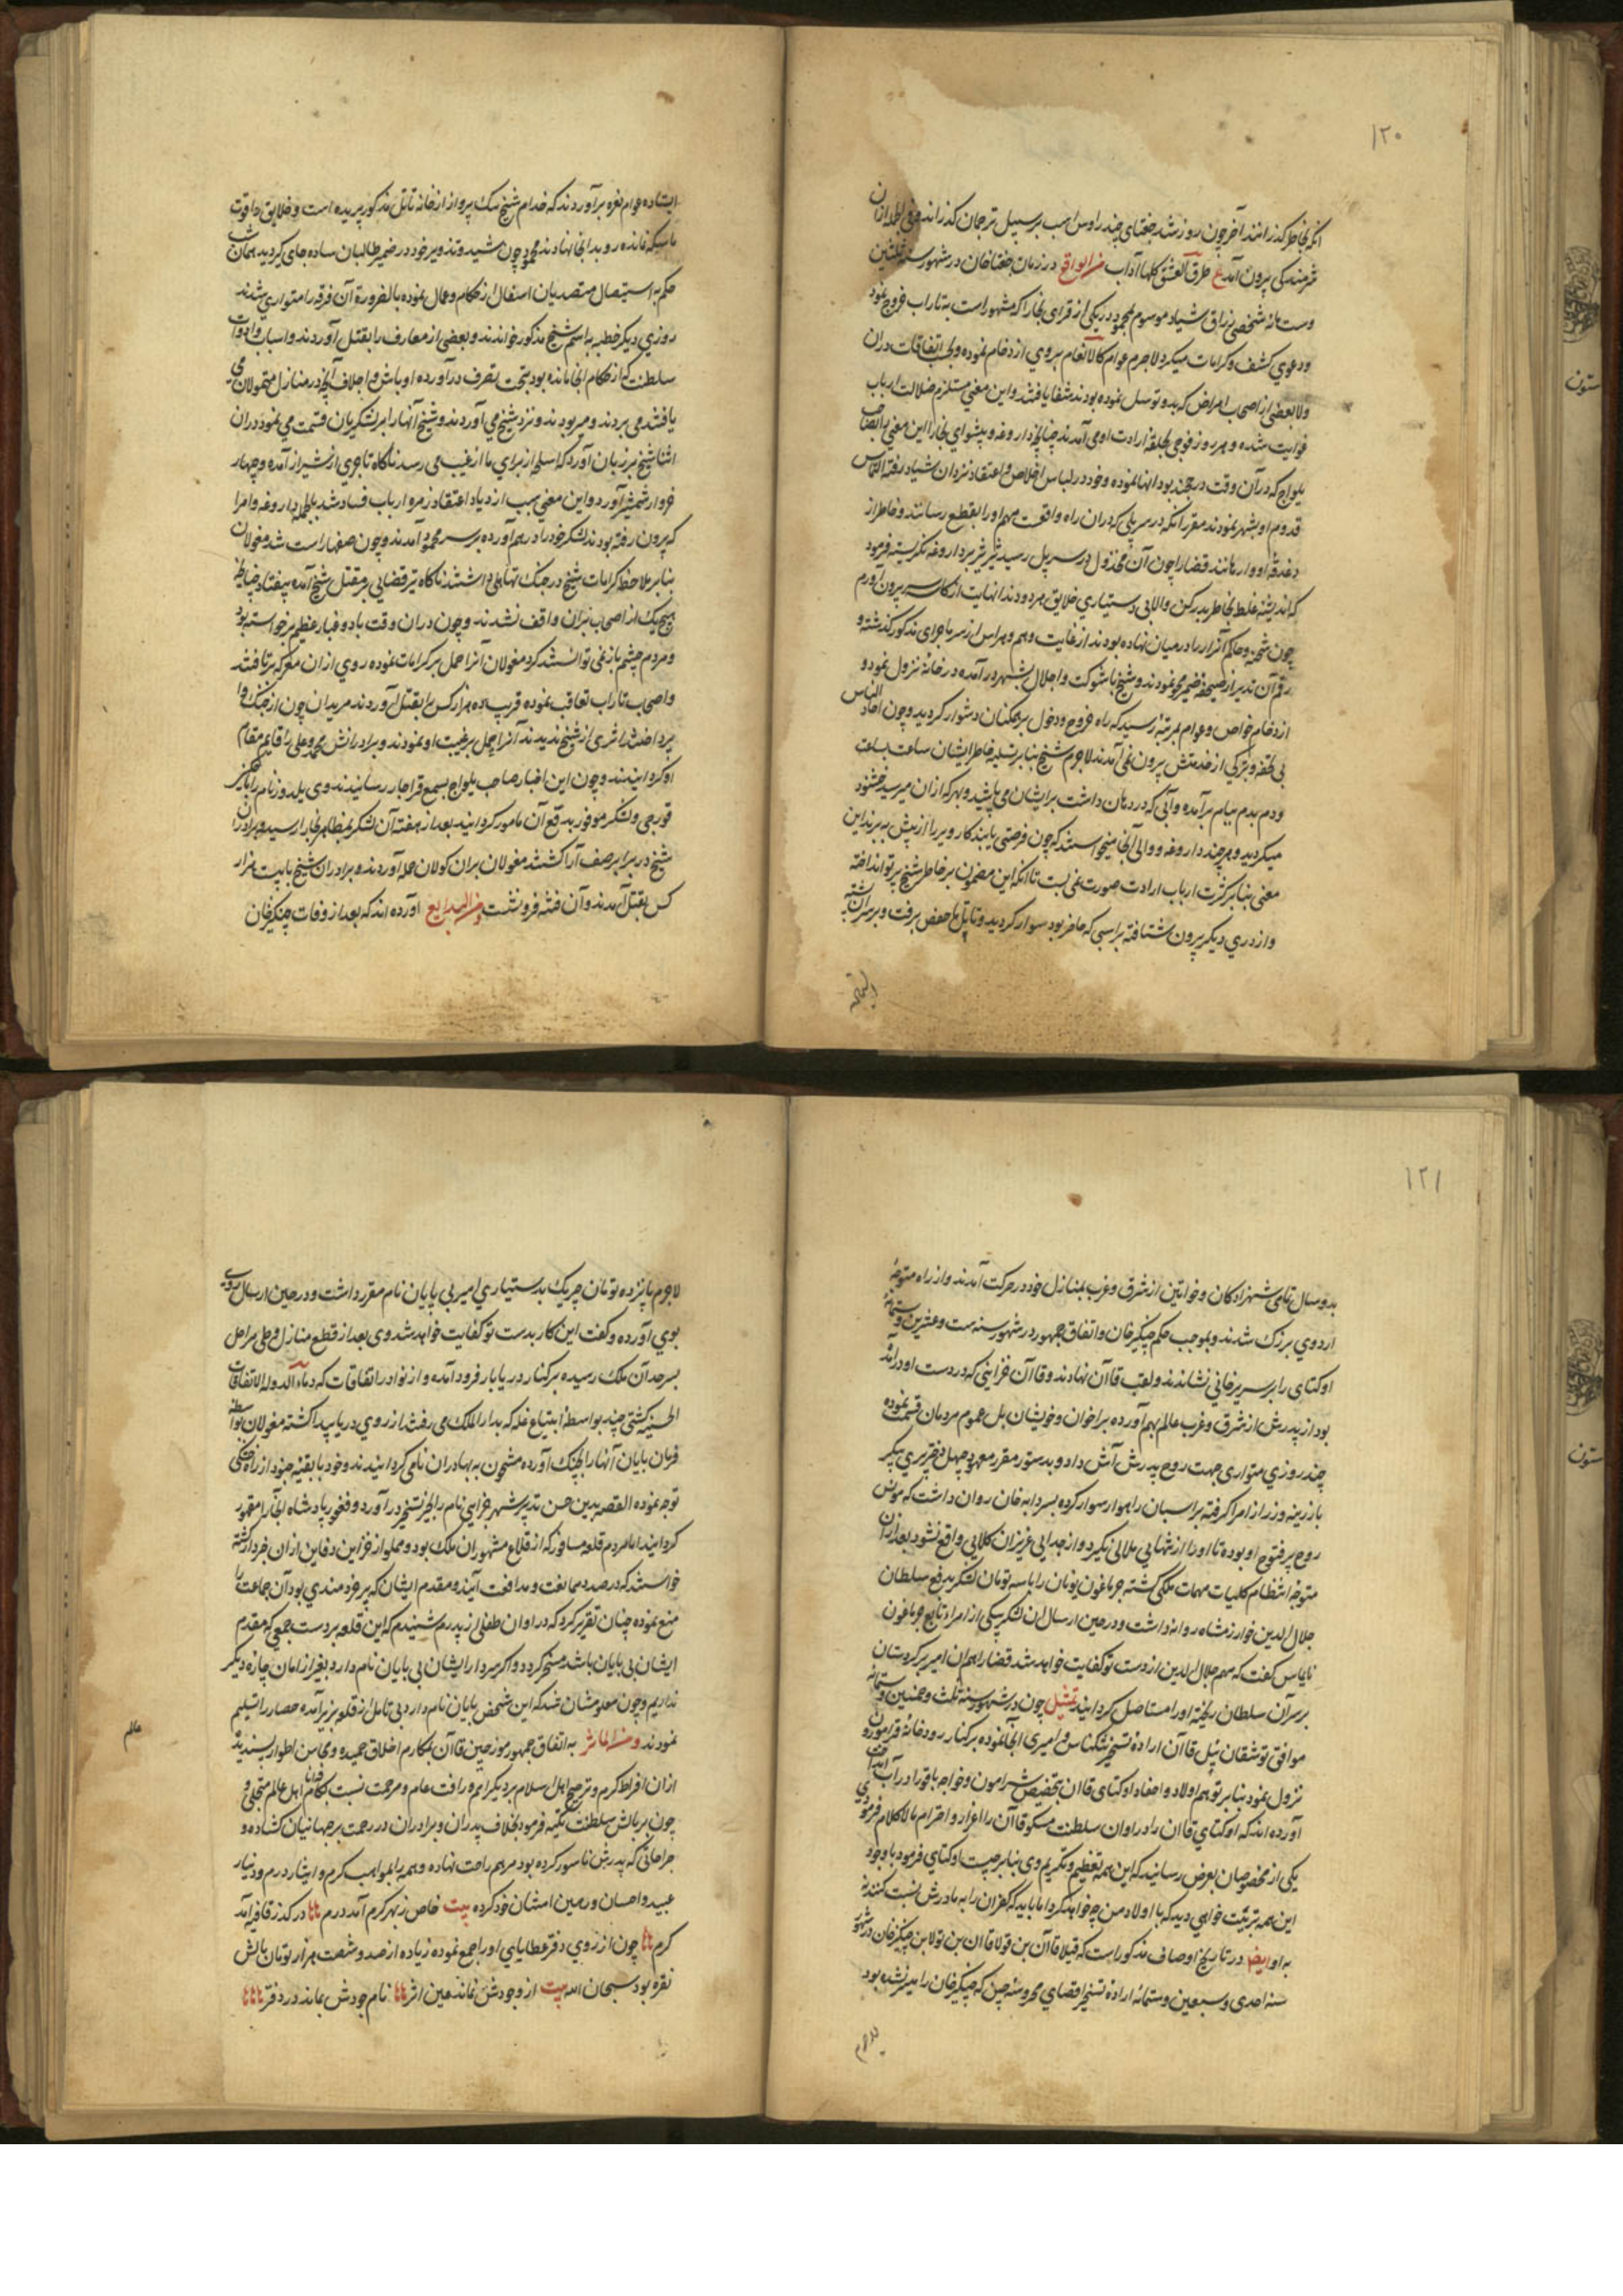 ۱۲۰
انکه بخاطر گذرانند آخر چون روز شد جغتای چند راوس اسب بر سبیل ترجمان گذراند و فی الجمله ازان
شرمندکی بیرون آمد ع طرق العشق کلها آداب من الوقایع در زمان جغتاخان در شهور سنه ثلثین
وستمائه شخصی زراق شیاد موسوم بمحمود در یکی از قرای بخارا که مشهور است به تاراب خروج نمود
ودعوی کشف و کرامات میکرد لاجرم عوام کالانعام بروی ازدحام نموده و بحسب اتفاقات دران
ولا بعضی از اصحاب امراض که بدو توسل نموده بودند شفا یافتند و این معنی مستلزم ضلالت ارباب
غوایت شده و هر روز فوجی بحلقه ارادت او می آمدند چنانچه داروغه و پیشوای بخارا این معنی بانصاحب
یلواج که در آن وقت در خجند بود انها نموده و خود در لباس اخلاص و اعتقاد نزد ان شیاد رفته التماس
قدوم او بشهر نمودند مقرر آنکه در سر پلی که دران راه واقعست مهم او را بقطع رسانند و خاطر از
دغدغه او وارهانند قضا را چون آن مخذول در سر پل رسید شرشر بر داروغه نگریسته فرمود
که اندیشه غلط بخاطر بدر کن والا بی دستیاری خلایق مردود دندانهایت از کاسه سر بیرون آورم
چون شحنه و حاکم آنرا در میان نهاده بودند از غایت وهم و هراس از سر ماجرای مذکور گذشته و
رقم آن تدبیر از صحیفه ضمیر محو نمودند و شیخ با شوکت و اجلال بشهر درآمده در خانه نزول نمود و
ازدحام خواص و عوام بمرتبه رسید که راه خروج و دخول بر همکنان دشوار کردید و چون احاد الناس
بی تحفه و تبرکی از خدمتش بیرون نمی آمدند لاجرم شیخ بنابر تسلیه خاطر ایشان ساعت بساعت
ودم بدم ببام برآمده و آبی که در دهان داشت بر ایشان می پاشید و بهر که ازان میرسید خشنود
میکردید و هر چند داروغه و والی آنجا میخواستند که چون فرصتی یابند کار ویرا از پیش ببرند این
معنی بنابر کثرت ارباب ارادت صورت نمی بست تا آنکه این مضمون بر خاطر شیخ پرتو انداخته
واز دری دیگر بیرون شتافته بر اسبی که حاضر بود سوار کردید و تا پل باحفص برفت و بر سر آن پشته
ایستاده عوام نعره برآوردند که خدام شیخ سبک پرواز از خانه تا تل مذکور پریده است و خلایق را قوت
ماسکه نمانده رو بدانجا نهادند محمود چون شید و تزویر خود در ضمیر طالبان ساده جای کردید همان شب
حکم به استیصال متصدیان اشغال از حکام و عمال نموده بالضرورة آن فرقه را متواری شدند
روزی دیگر خطبه به اسم شیخ مذکور خواندند و بعضی از معارف را بقتل آوردند و اسباب و ادوات
سلطنت که از حکام آنجا مانده بود بتحت تصرف درآورده اوباش و اجلاف آنچه در منازل متمولان می
یافتند می بردند و می ربودند و نزد شیخ می آوردند و شیخ آنها را بر لشکریان قسمت می نمود دران
اثنا شیخ بر زبان آورد که اسلحه از برای ما از غیب می رسد ناگاه تاجری از شیراز آمده و چهار
خروار شمشیر آورد و این معنی سبب ازدیاد اعتقاد زمره ارباب فساد شد بالجمله داروغه و امرا
که بیرون رفته بودند لشکر خود را درهم آورده بر سر محمود آمدند و چون صفها راست شد مغولان
بنابر ملاحظه کرامات شیخ در جنک تهاملی داشتند ناگاه تیر قضایی بر مقتل شیخ آمده بیفتاد چنانچه
هیچیک از اصحاب بران واقف نشدند و چون دران وقت باد و غبار عظیم برخواسته بود
ومردم چشم باز نمی توانستند کرد مغولان آنرا حمل بر کرامات نموده روی از ان معرکه برتافتند
واصحاب تاراب تعاقب نموده قریب ده هزار کس را بقتل آوردند مریدان چون از جنک وا
پرداختند اثری از شیخ ندیدند آنرا حمل بر غیبت او نمودند و برادرانش محمد و علی را قایم مقام
او کردانیدند و چون این اخبار صاحب یلواج بسمع قراجار رسانیدند وی یلدوز نام را با
قورچی و لشکر موفور بدفع آن مامور کردانید بعد از هفته آن لشکر بظاهر بخارا رسید و برادران
شیخ در برابر صف آرا کشتند مغولان بران کولان حمله آوردند و برادران شیخ با بیست هزار
کس بقتل آمدند و آن فتنه فرو نشست من البدایع آورده اند که بعد از وفات چنکیزخان
۱۲۱
بدو سال تمامی شهزادکان و خواتین از شرق و غرب بمنازل خود در حرکت آمدند و از راه متوجه
اردوی بزرک شدند و بموجب حکم چنکیزخان و اتفاق جمهور در شهور سنه ست و عشرین وستمائه
اوکتای را بر سریر خانی نشاندند و لقب قاآن نهادند و قاآن خزاینی که در دست او درآمد
بود از پدرش از شرق و غرب عالم بهم آورده بر اخوان و خویشان بل عموم مردمان قسمت نموده
چند روزی متواری جهت روح پدرش آش داد و بدستور مقرر معهود چهل دختر پری پیکر
بازرینه و زر از امرا گرفته بر اسبان راهوار سوار کرده بسردابه خان روان داشت که مونس
روح پر فتوح او بوده تا او را از تنهایی ملالی نگیرد و از جدایی عزیزان کلالی واقع نشود بعد ازان
متوجه انتظام کلیات مهمات ملکی کشته جرماغون نویان را با سه تومان لشکر بدفع سلطان
جلال الدین خوارزمشاه روانه داشت و در حین ارسال ان لشکر بیکی از امراء تابع جرماغون
تایماس کفت که مهم جلال الدین از دست تو کفایت خواهد شد قضا را همان امیر بر کردستان
بر سر آن سلطان ریخته او را مستاصل کردانید تمثیل چون در شهور سنه ثلث و خمسین وستمائه
موافق توشقان ئیل قاآن اراده تسخیر ننکیاس و امیری آنجا نموده بر کنار رودخانه قراموران
نزول نمود بنابر توهم اولاد و احفاد اوکتای قاان بتخصیص شیرامون و خواجه باقو را در آب انداخت
آورده اند که اوکتای قاان را در اوان سلطنت منکو قاآن را اعزاز و احترام مالاکلام فرمودی
یکی از مخصوصان بعرض رسانید که این همه تعظیم و تکریم وی بنابر چیست اوکتای فرمود باوجود
این همه تربیت خواهی دید که با اولاد من چه خواهد کرد اما باید که کفران را به مادرش نسبت کنند نه
به او ایضا در تاریخ وصاف مذکور است که قبلا قاآن بن تولی بن چنکیزخان در شهور
سنه احدی وسبعین وستمائه اراده تسخیر اقصای محروسه چین که چنکیزخان را میسر نشده بود
لاجرم
لاجرم پانزده تومان چریک بدستیاری امیری بایان نام مقرر داشت و در حین ارسال روی
بوی آورده و کفت این کار بدست تو کفایت خواهد شد وی بعد از قطع منازل و طی مراحل
بسرحد آن ملک رسیده بر کنار دریابار فرود آمده و از نوادر اتفاقات که دعاء الدوله الاتفاقات
الحسنه کشتی چند بواسطه ابتیاع غله که بدارالملک می رفتند از روی دریا پیدا کشته مغولان بواسطه
فرمان بایان آنها را بچنک آورده مشحون به بهادران نامی کردانیدند و خود با بقیه جنود از راه خشکی
توجه نموده القصه بدین حسن تدبیر شهر خزایی نام را بحیز تسخیر درآورد و فغفور پادشاه آنجا را مقهور
کردانید اما مردم قلعه مسافور که از قلاع مشهور ان ملک بود و مملو از خزاین و دفاین ازان خبردار کشته
خواستند که در صدد ممانعت و مدافعت آیند و مقدم ایشان که پیر خردمندی بود آن جماعت را
منع نموده چنان تقریر کرد که در اوان طفلی از پدرم شنیدم که این قلعه بر دست جمعی که مقدم
ایشان بی بایان باشد مسخر کردد و اکر سردار ایشان بی بایان نام دارد بغیر از امان چاره دیگر
نداریم و چون معلومشان شد که این شخص بایان نام دارد بی تامل از قلعه بزیر آمده حصار را تسلیم
نمودند ومن الماثر به اتفاق جمهور مورخین قاآن بمکارم اخلاق حمیده و محاسن اطوار پسندیده
ازان افراط کرم و ترجیح اهل اسلام بر دیگر امم و رافت عام و مرحمت نسبت بکافه انام اهل عالم متحلی و
چون بر بالش سلطنت تکیه فرمود بخلاف پدران و برادران در رحمت بر جهانیان کشاده و
جراحاتی که پدرش ناسور کرده بود مرهم راحت نهاده و همه را بمواهب کرم و ایثار درم و دینار
عبید و احسان و رهین امتنان خود کرده بیت خاص ز بهر کرم آمد درم در کذر قافیه آمد
کرم چون از روی دفتر عطایای او را جمع نموده زیاده از صد و شصت هزار تومان بالش
نقره بود سبحان الله بیت از وجودش نماند عین اثر نام جودش بماند در دفتر
عالم
ستون
ستون